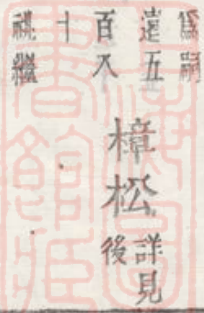 爲嗣
遠五
百八
十
祺繼
樟松
詳見
後